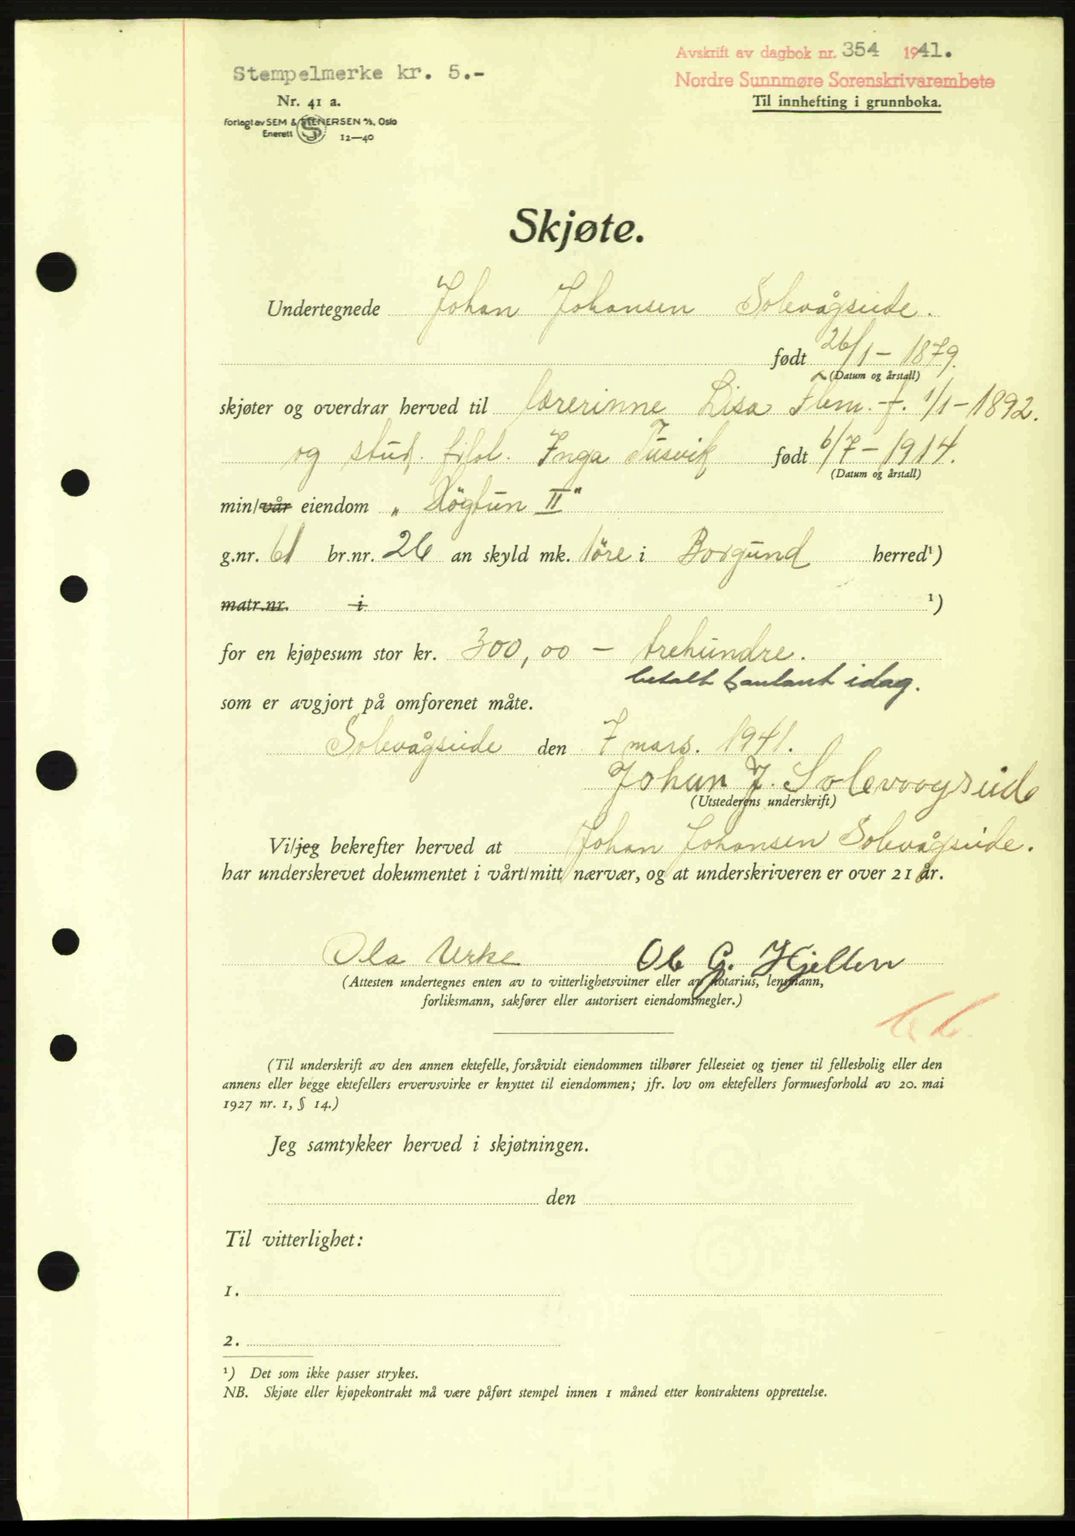 Avskrift av dagbok nr. 354 1941.
Stempelmerke kr. 5.- Nordre Sunnmøre Sorenskrivarembete
Nr. 41 a. Til innhefting i grunnboka.
Forlagt av SEM & STENERSEN A/S, Oslo
Enerett S 12—40
Skjøte.
Undertegnede Johan Johansen Solevågseide.
født 26/1 – 1879.
(Datum og årstall)
skjøter og overdrar herved til lærerinne Lisa Flem. f. 1/1 – 1892.
og stud. filol. Inga Tusvik født 6/7 – 1914.
(Datum og årstall)
min/vår eiendom „Høgtun II"
g.nr. 61 br.nr. 26 an skyld mk. 1 øre i Borgund herred¹)
matr.nr. i ¹)
for en kjøpesum stor kr. 300,00 – trehundre.
betalt kontant idag.
som er avgjort på omforenet måte.
Solevågseide den 7 mars. 1941.
Johan J. Solevaagseide
(Utstederens underskrift)
Vi/jeg bekrefter herved at Johan Johansen Solevågseide.
har underskrevet dokumentet i vårt/mitt nærvær, og at underskriveren er over 21 år.
Ola Urke Ole G. Hjellen
(Attesten undertegnes enten av to vitterlighetsvitner eller av notarius, lensmann,
forliksmann, sakfører eller autorisert eiendomsmegler.)
(Til underskrift av den annen ektefelle, forsåvidt eiendommen tilhører felleseiet og tjener til fellesbolig eller den
annens eller begge ektefellers ervervsvirke er knyttet til eiendommen; jfr. lov om ektefellers formuesforhold av 20. mai
1927 nr. 1, § 14.)
Jeg samtykker herved i skjøtningen.
den
Til vitterlighet:
1.
2.
¹) Det som ikke passer strykes.
NB. Skjøte eller kjøpekontrakt må være påført stempel innen 1 måned etter kontraktens opprettelse.